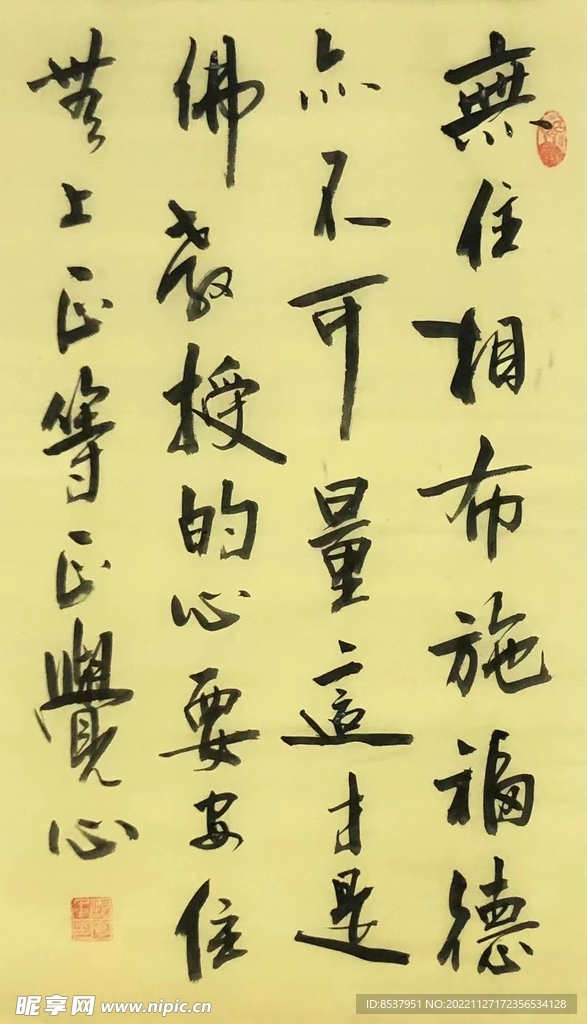 無住相布施福德
亦不可量這才是
佛教授的心要安住
無上正等正覺心
昵享网 www.nipic.cn
ID:8537951 NO:20221127172356534128